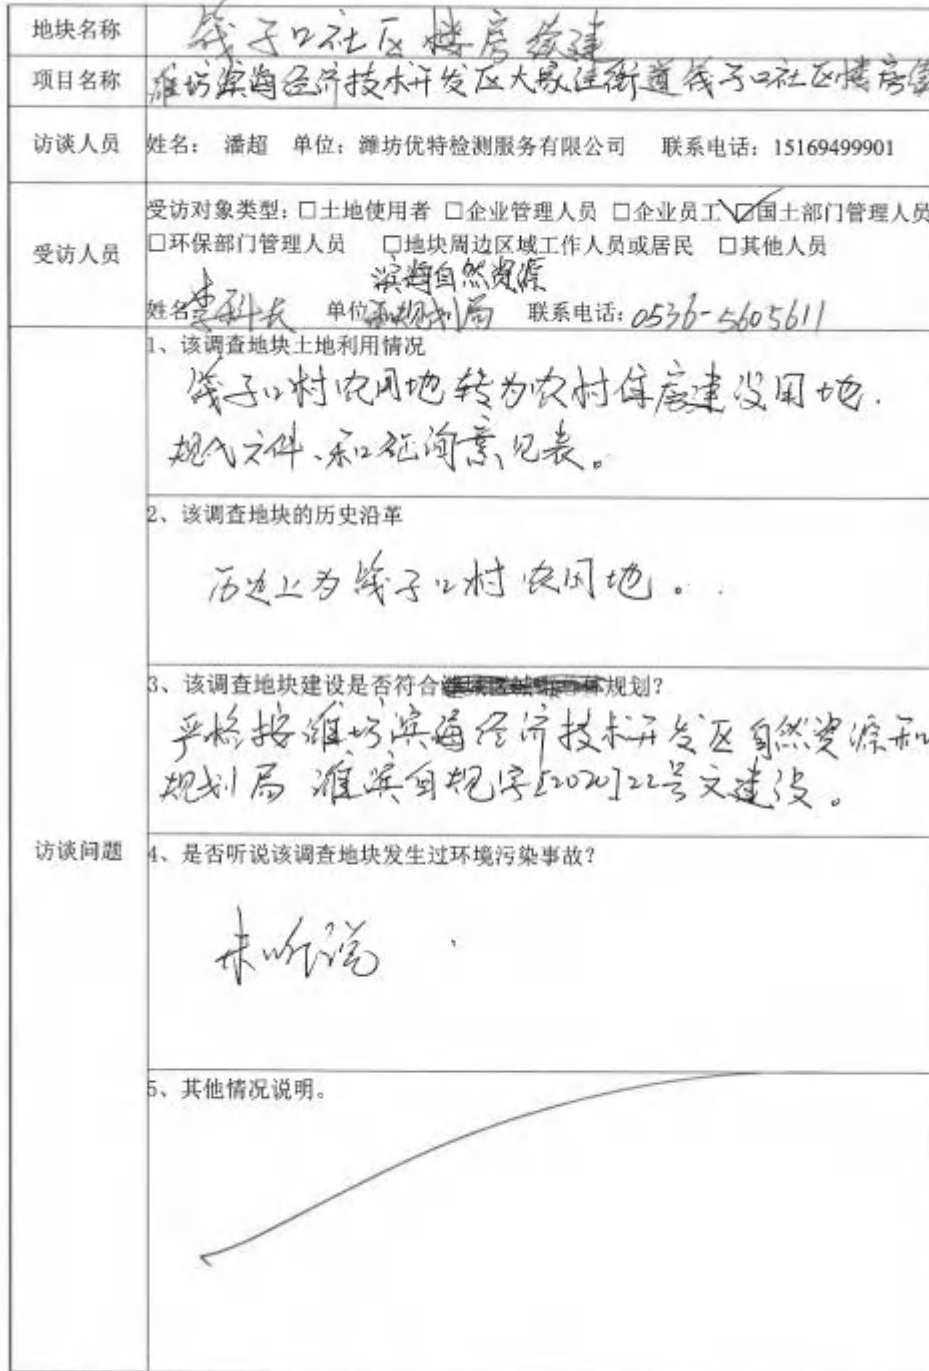 地块名称 筏子口社区楼房续建
项目名称 潍坊滨海经济技术开发区大家洼街道筏子口社区楼房续
访谈人员 姓名： 潘超 单位：潍坊优特检测服务有限公司 联系电话：15169499901
受访人员 受访对象类型：□土地使用者 □企业管理人员 □企业员工 ☑国土部门管理人员
□环保部门管理人员 □地块周边区域工作人员或居民 □其他人员
滨海自然资源
姓名 李科长 单位 和规划局 联系电话：0536-5605611
访谈问题
1、该调查地块土地利用情况
筏子口村农用地转为农村住房建设用地.
规划文件、和征询意见表。
2、该调查地块的历史沿革
历史上为筏子口村农用地。
3、该调查地块建设是否符合规划？
严格按潍坊滨海经济技术开发区自然资源和
规划局 潍滨自规字[2020]22号文建设。
4、是否听说该调查地块发生过环境污染事故？
未听说
5、其他情况说明。